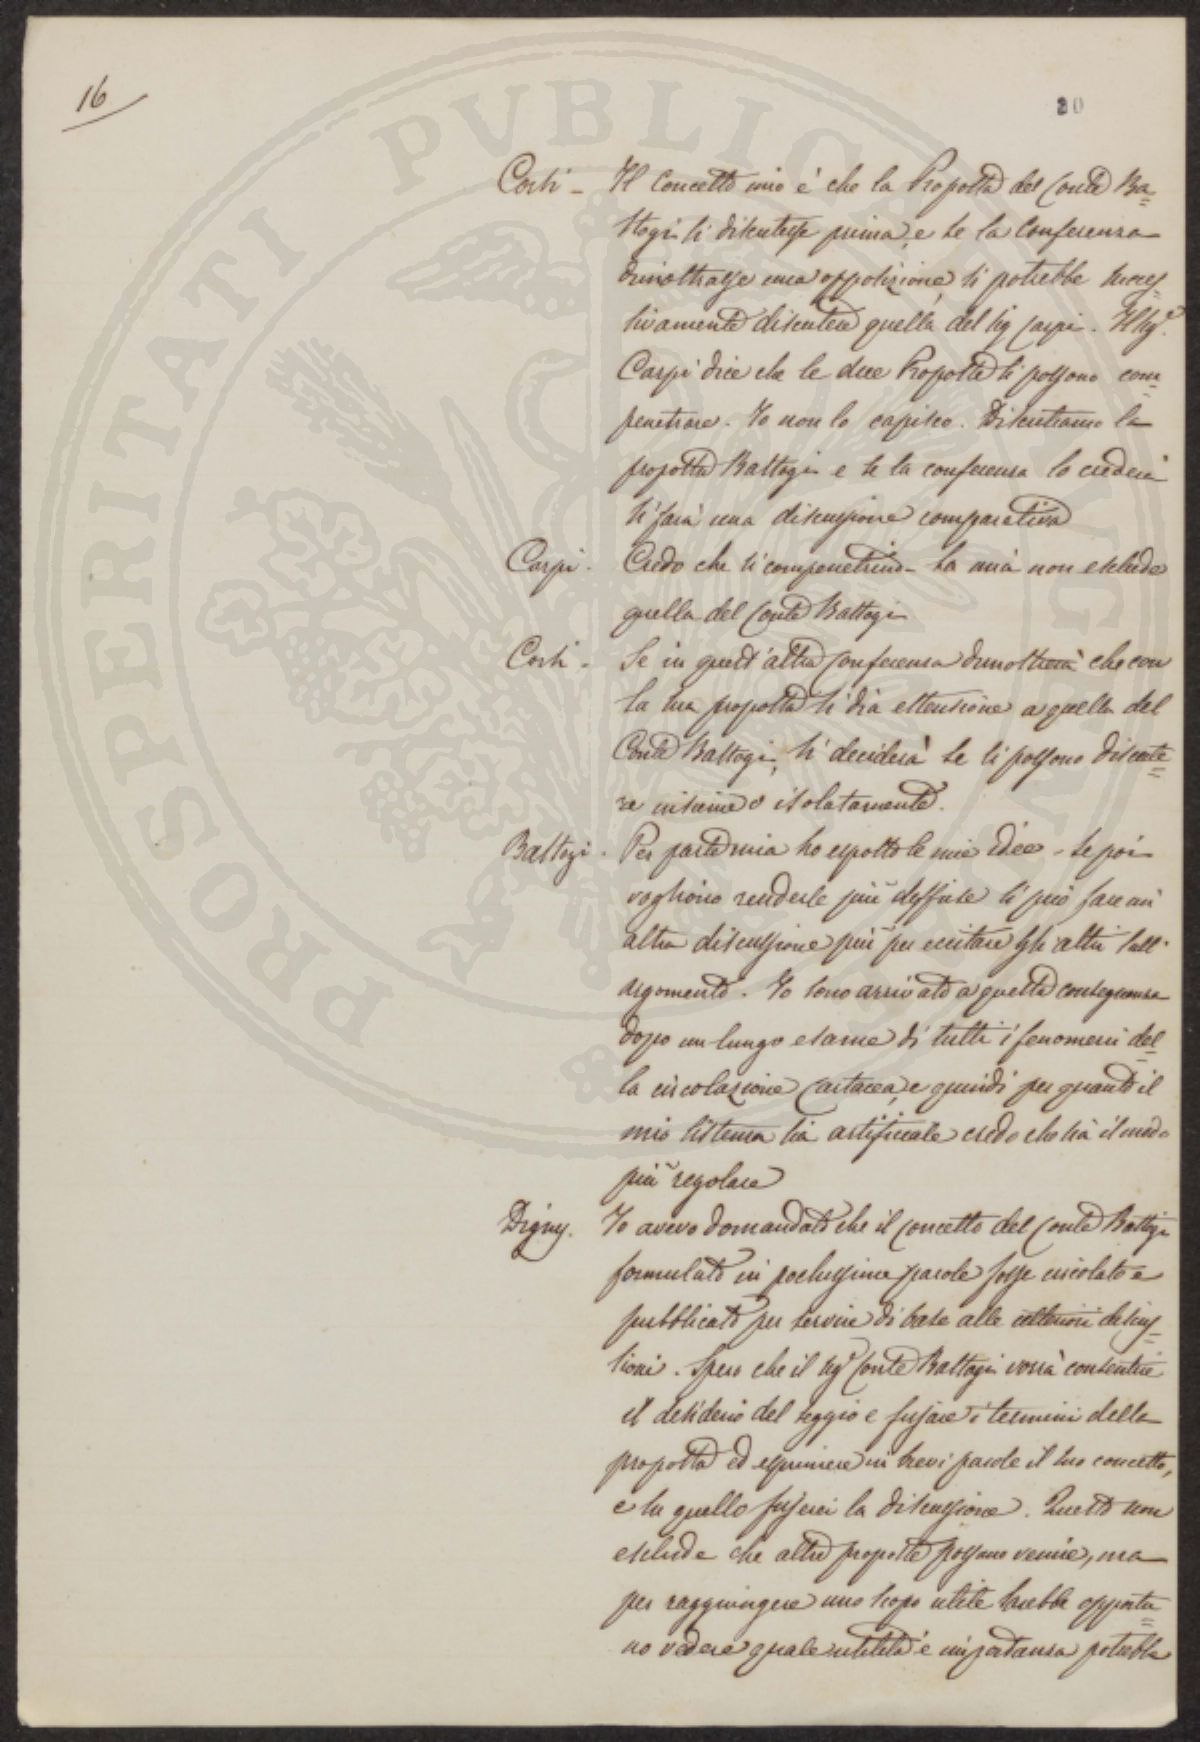 16
20
PROSPERITATI PUBLICAE
Corsi - Il concetto mio è che la Proposta del Conte Ba=
stogi si discutesse prima, e se la Conferenza
dimostrasse una opposizione, si potrebbe succes=
sivamente discutere quella del sig Carpi. Il sig.e
Carpi dice che le due Proposte si possono com=
penetrare. Io non lo capisco. Discutiamo la
proposta Bastogi e se la conferenza lo crederà
si farà una discussione comparativa
Carpi. Credo che si compenetrino - La mia non esclude
quella del Conte Bastogi
Corsi - Se in quest'altra Conferenza dimostrerà che con
la sua proposta si dia estensione a quella del
Conte Bastogi, si deciderà se si possono discute=
re insieme o isolatamente.
Bastogi. Per parte mia ho esposto le mie idee - se poi
vogliono renderle più diffuse si può fare un'
altra discussione più per eccitare gli altri sull'
argomento. Io sono arrivato a questa conseguenza
dopo un lungo esame di tutti i fenomeni del=
la circolazione cartacea, e quindi per quanto il
mio sistema sia artificiale credo che sia il modo
più regolare
Digny. Io avevo domandato che il concetto del Conte Bastogi
formulato in pochissime parole fosse circolato e
pubblicato per servire di base alle ulteriori discus=
sioni. Spero che il sig.e Conte Bastogi vorrà consentire
il desiderio del seggio e fissare i termini della
proposta ed esprimere in brevi parole il suo concetto,
e su quello fisserei la discussione. Questo non
esclude che altre proposte possano venire, ma
per raggiungere uno scopo utile sarebbe opportu=
no vedere quale utilità e importanza potrebbe